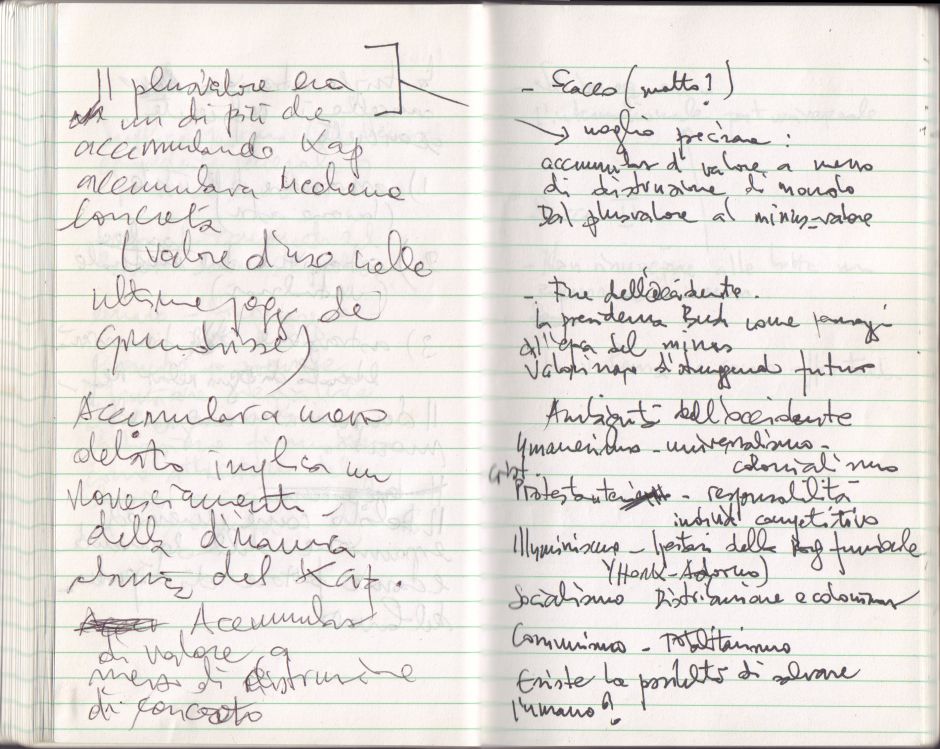 Il plusvalore era
un di più di
accumulando Kap
accumulava ricchezza
concreta
(valore d'uso nelle
ultime pagg dei
Grundrisse)
Accumular a mezzo
debito implica un
rovesciamento
della dinamica
del Kap.
Accumular
di valore a
mezzo di distruzione
di concreto
- Scacco (matto?)
voglio precisare:
accumular di valore a mezzo
di distruzione di mondo
Dal plusvalore al minus-valore
- Fine dell'occidente.
la presidenza Bush come passaggio
all'era del minus
valore distruggendo futuro
Ambiguità dell'occidente
Umanesimo - universalismo -
colonialismo
Protestante - responsabilità
individ competitivo
Illuminismo - della Rag funzionale
(Hork-Adorno)
Socialismo Distribuzione e
Comunismo - Totalitarismo
Esiste la possibilità di salvare
l'umano?